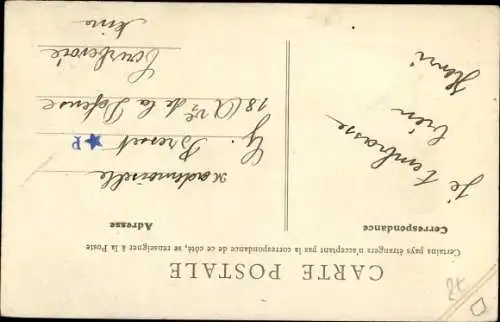 CARTE POSTALE
Certains pays étrangers n'acceptant pas la correspondance de ce côté, se renseigner à la Poste
Correspondance
Je t'embrasse
bien
Henri
Adresse
Mademoiselle
G. Bresset
18 (A ve de la Défense
Courbevoie
Seine
P